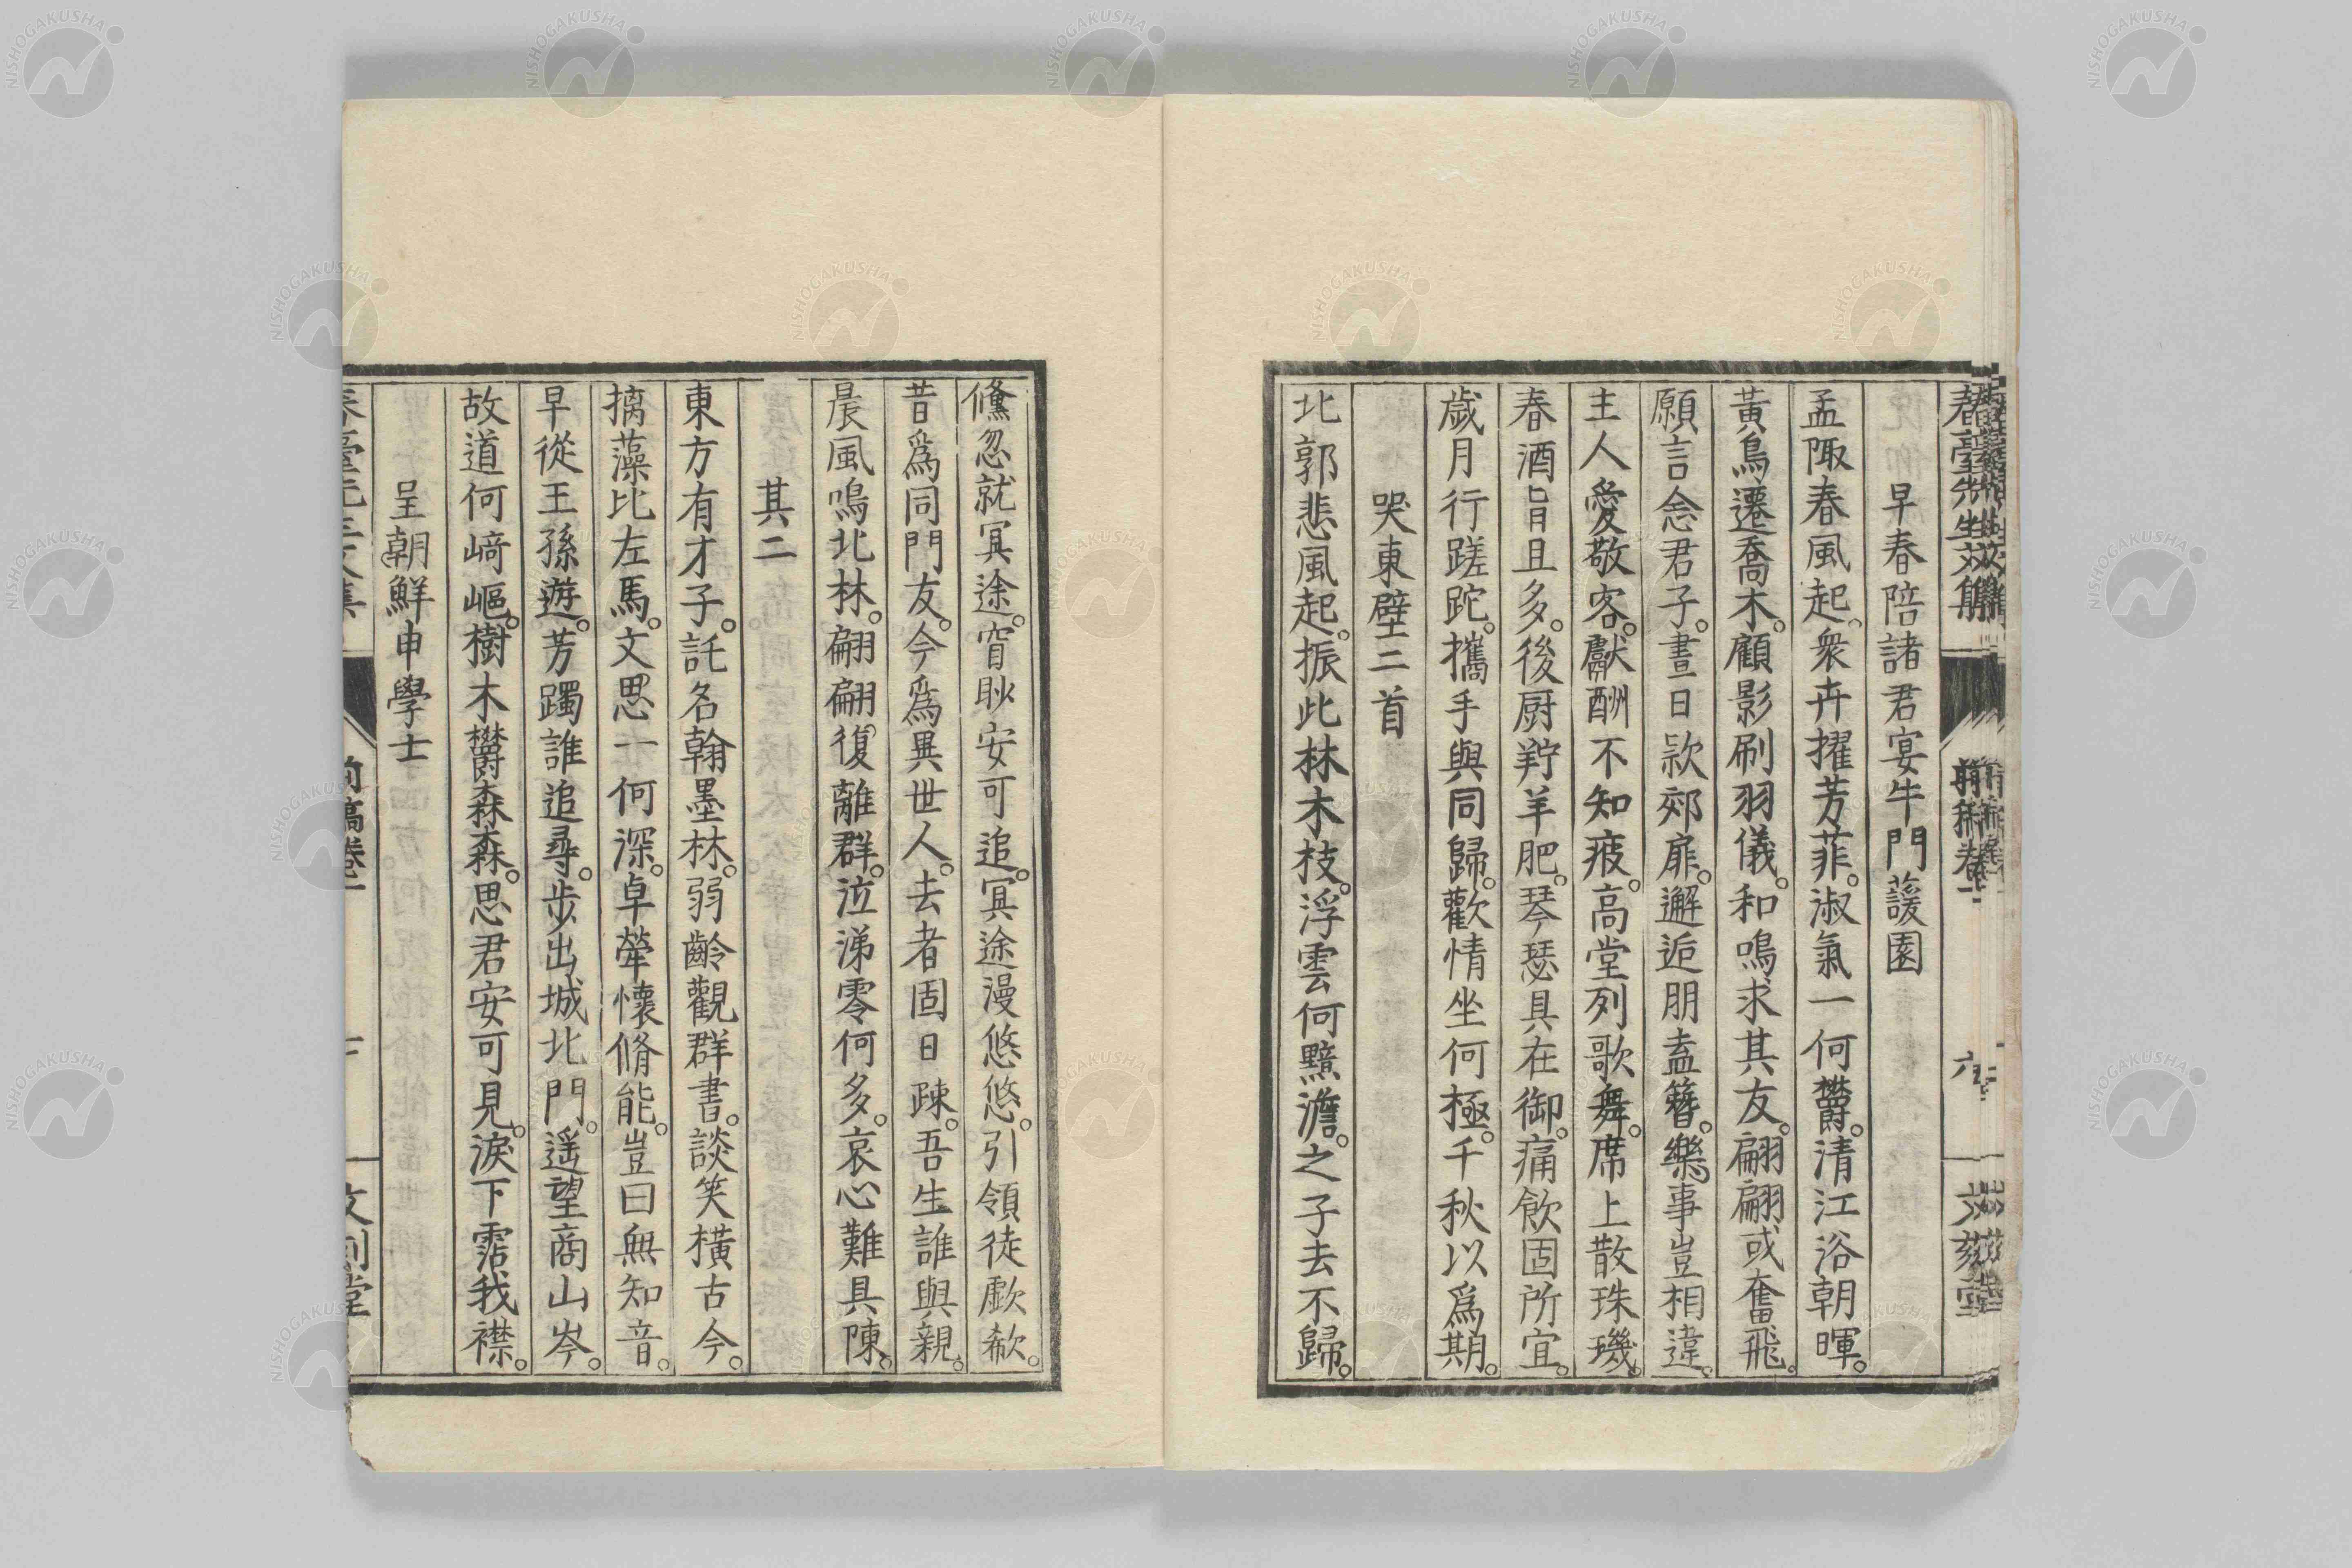 春臺先生文集
前稿卷一
六
早春陪諸君宴牛門蘐園
孟陬春風起。衆卉擢芳菲。淑氣一何欝。清江浴朝暉。
黃鳥遷喬木。顧影刷羽儀。和鳴求其友。翩翩或奮飛。
願言念君子。晝日欵郊扉。邂逅朋盍簪。樂事豈相違。
主人愛敬客。獻酬不知疲。高堂列歌舞。席上散珠璣。
春酒旨且多。後厨羜羊肥。琴瑟具在御。痛飲固所宜。
歲月行蹉跎。攜手與同歸。歡情坐何極。千秋以爲期。
哭東壁二首
北郭悲風起。振此林木枝。浮雲何黮澹。之子去不歸。
儵忽就冥途。窅眇安可追。冥途漫悠悠。引領徒歔欷。
昔爲同門友。今爲異世人。去者固日疎。吾生誰與親。
晨風鳴北林。翩翩復離群。泣涕零何多。哀心難具陳。
其二
東方有才子。託名翰墨林。弱齡觀群書。談笑橫古今。
摛藻比左馬。文思一何深。卓犖懷脩能。豈曰無知音。
早從王孫遊。芳躅誰追尋。步出城北門。遥望商山岑。
故道何﨑嶇。樹木欝森森。思君安可見。淚下霑我襟。
呈朝鮮申學士
NISHOGAKUSHA